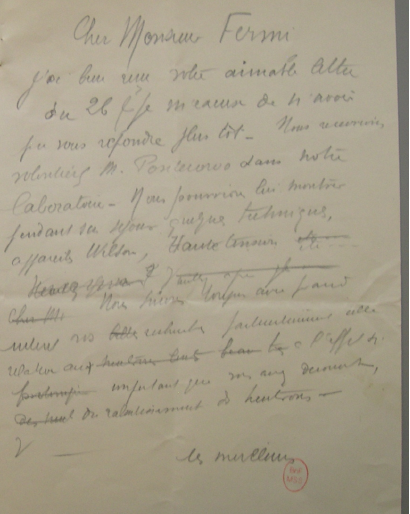 Cher Monsieur Fermi
J'ai bien reçu votre aimable lettre
du 26 je m'excuse de n'avoir
pu vous répondre plus tôt - Nous recevrions
volontiers M. Pontecorvo dans notre
Laboratoire - Nous pourrions lui montrer
pendant son séjour quelque technique,
appareils Wilson, Haute tension
Cher Mr Nous suivons toujours avec grand
intérêt vos recherches particulièrement celle
relative aux à l'effet si
important que vous avez découvert,
du ralentissement de neutrons -
les meilleurs